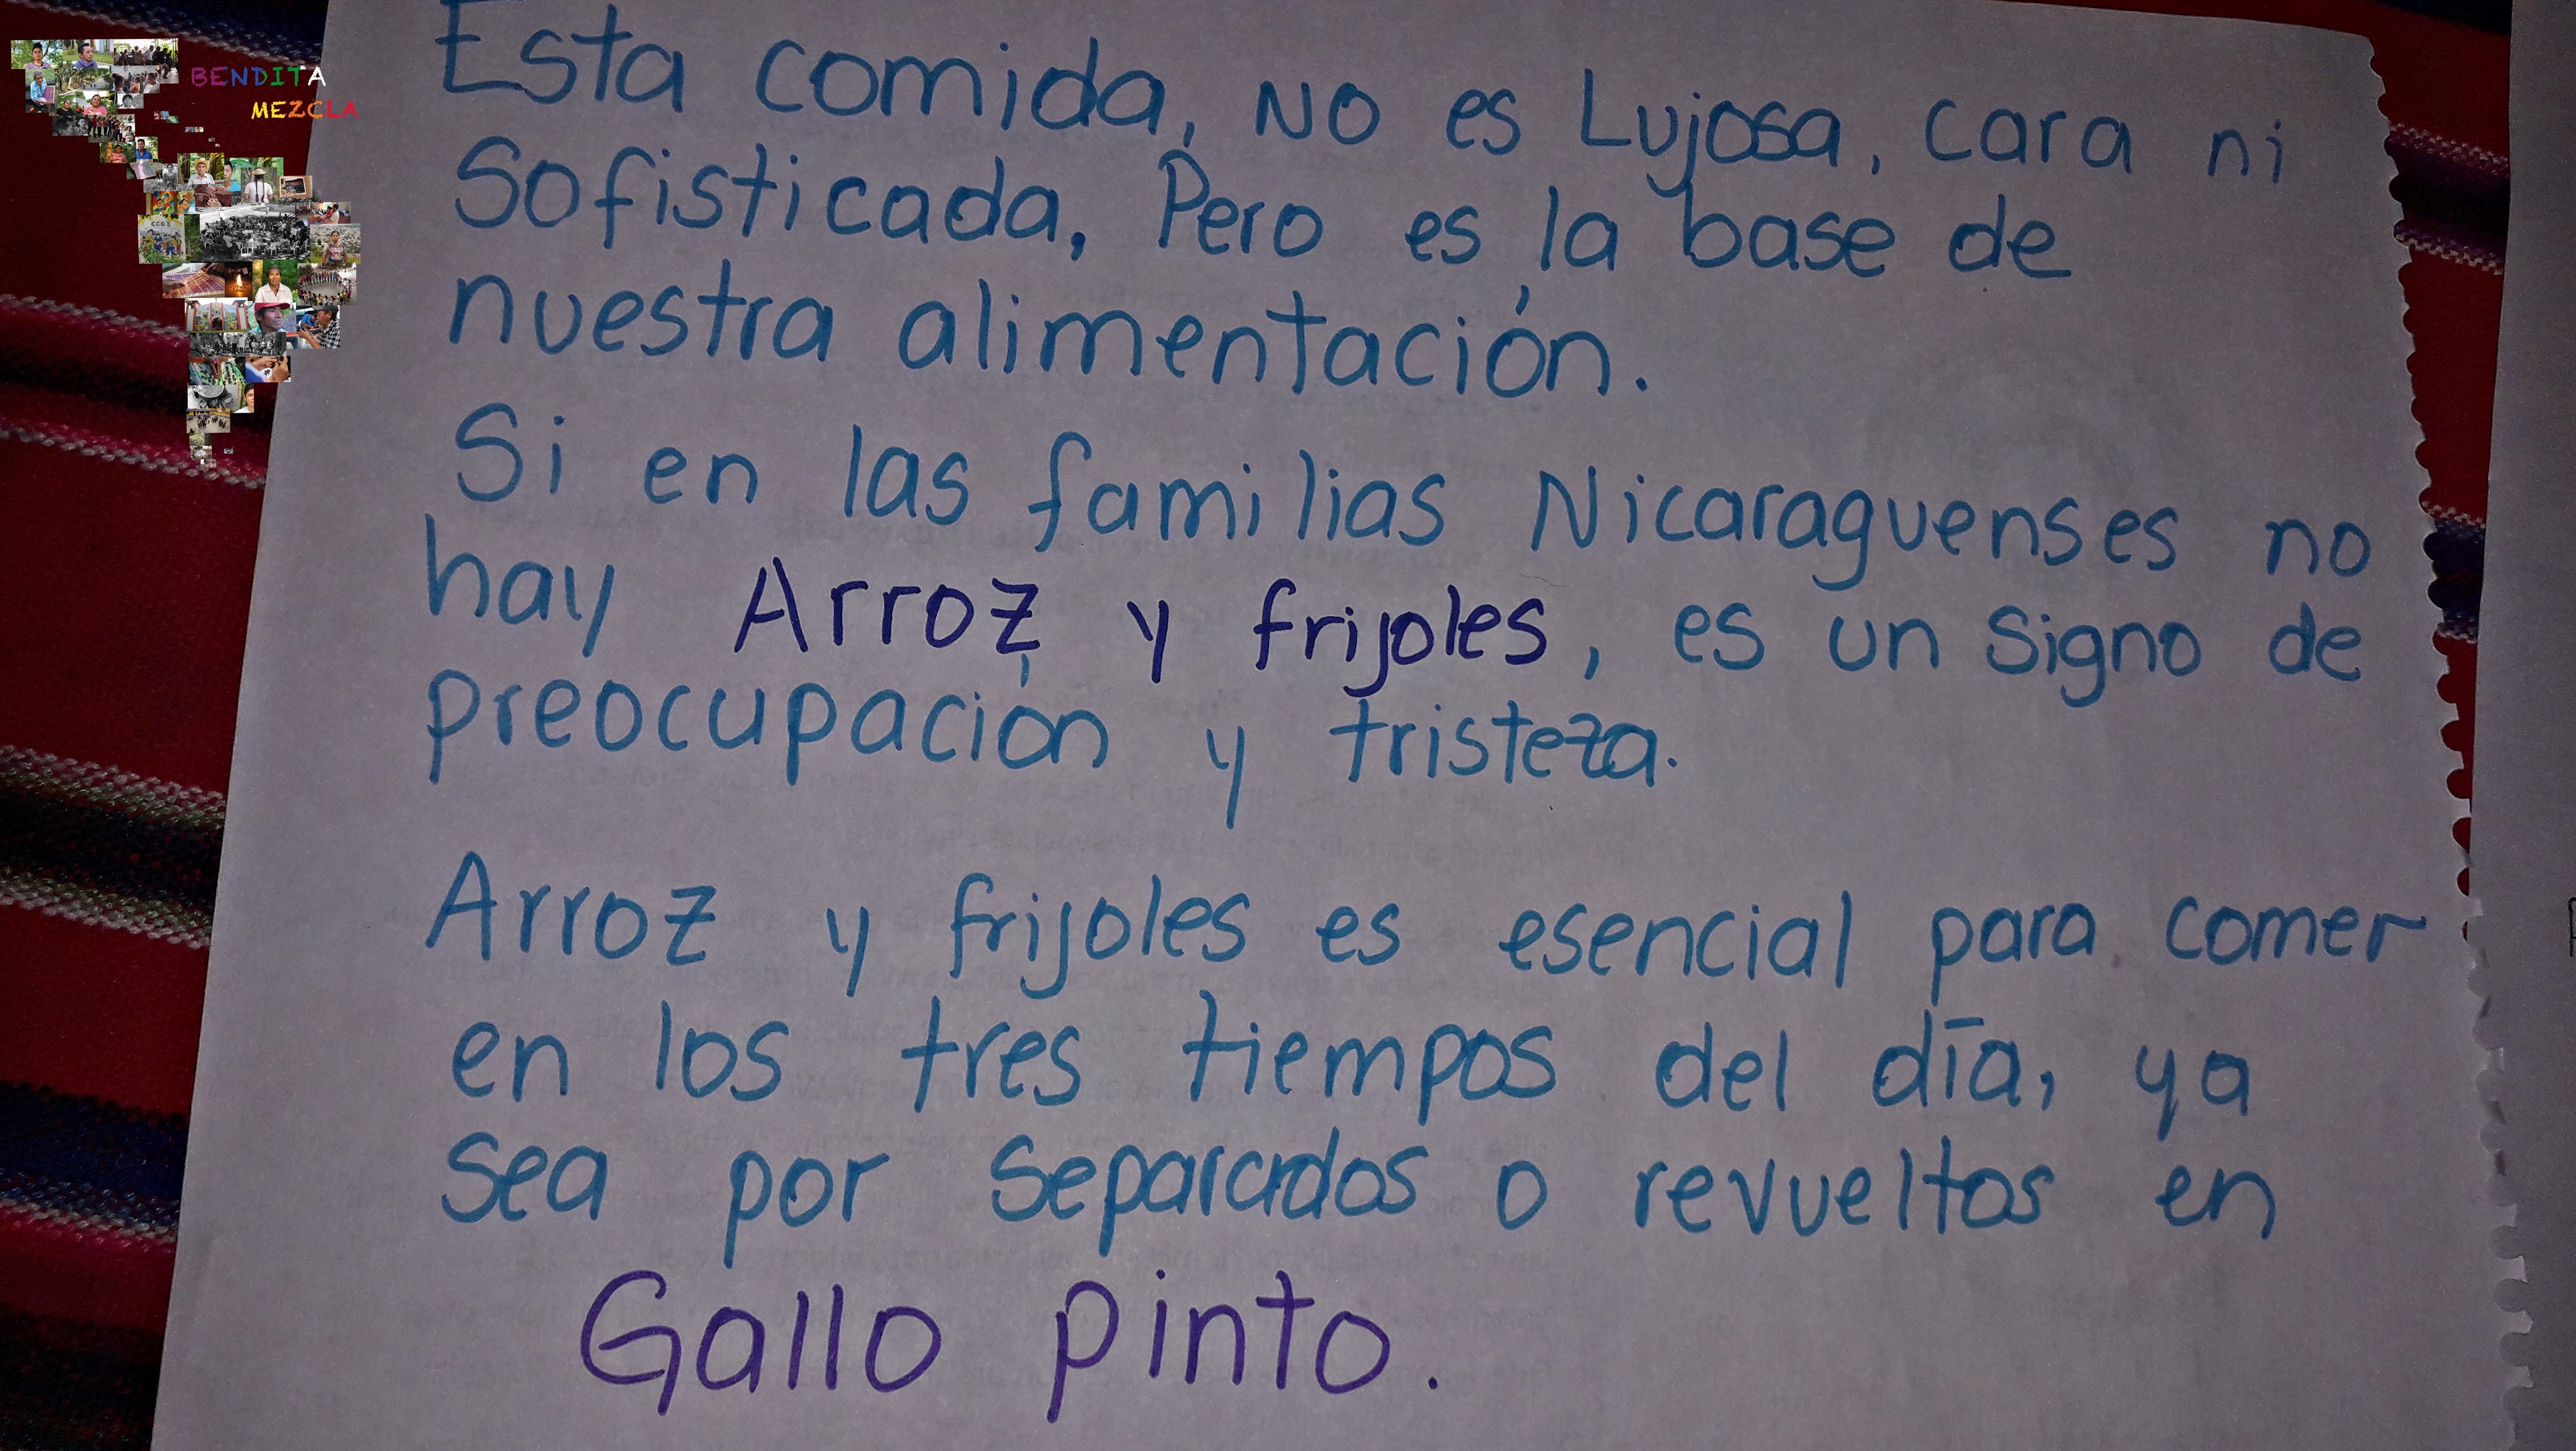 BENDITA
MEZCLA
Esta comida, NO es Lujosa, cara ni
Sofisticada, Pero es la base de
nuestra alimentación.
Si en las familias Nicaraguenses no
hay Arroz y frijoles, es un signo de
preocupación y tristeza.
Arroz y frijoles es esencial para comer
en los tres tiempos del día, ya
sea por separados o revueltos en
Gallo pinto.